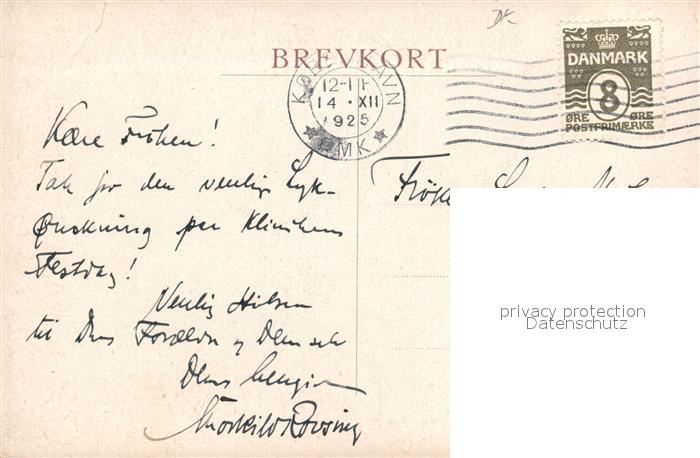 DK
BREVKORT
KØBENHAVN
12-1 F
14 · XII
1925
★ OMK ★
DANMARK
8
ØRE ØRE
POSTFRIMÆRKE
Kære Frøken!
Tak for den venlige Lyk-
Ønskning paa Klinikens
Festdag!
Venlig Hilsen
til Deres Forældre og Dem selv
Deres hengivne
Thorkild Rovsing
Frøken
privacy protection
Datenschutz